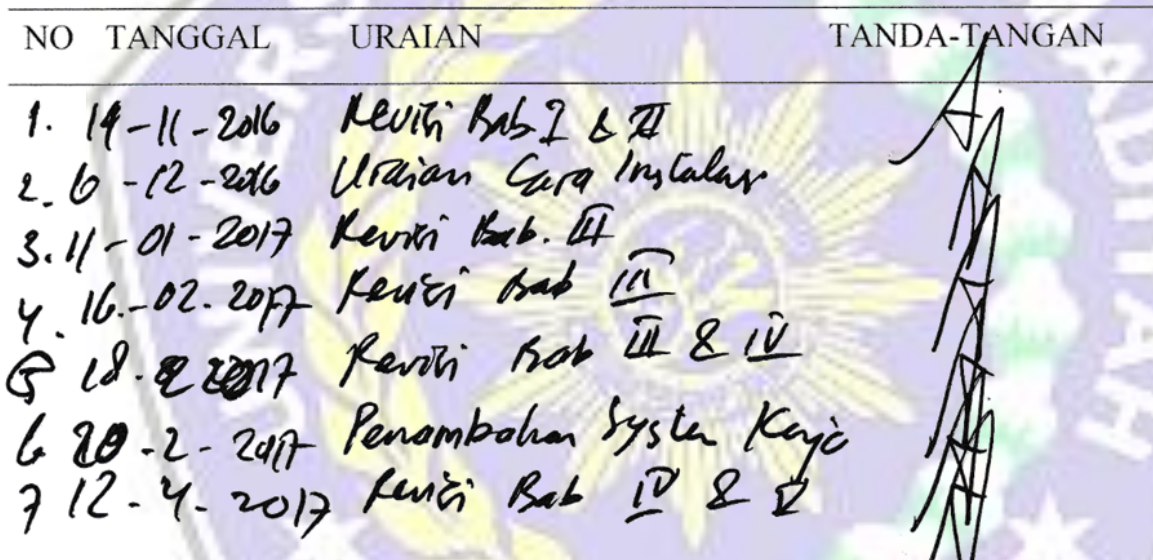 NO TANGGAL URAIAN TANDA-TANGAN
1. 14-11-2016 Revisi Bab I & II
2. 6-12-2016 Uraian Cara Instalasi
3. 11-01-2017 Revisi Bab. III
4. 16.-02-2017 Revisi Bab III
5 18.2 2017 Revisi Bab III & IV
6 20-2-2017 Penambahan System Kerja
7 12-4-2017 Revisi Bab IV & V